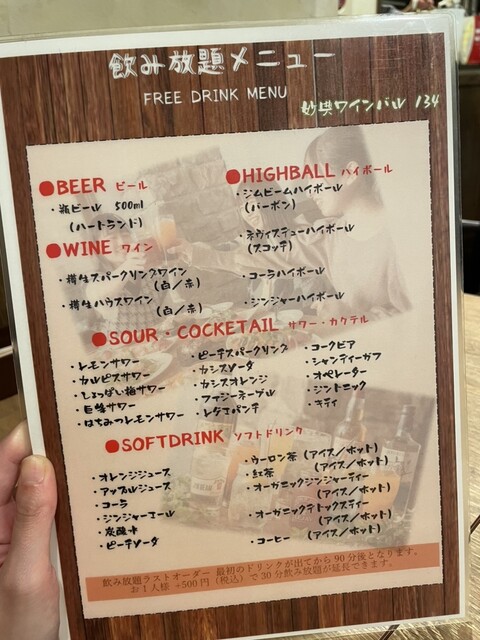 飲み放題メニュー
FREE DRINK MENU
妙典ワインバル 134
●BEER ビール
・瓶ビール 500ml
(ハートランド)
●WINE ワイン
・樽生スパークリングワイン
(白/赤)
・樽生ハウスワイン
(白/赤)
●HIGHBALL ハイボール
・ジムビームハイボール
(バーボン)
・ネヴィスデューハイボール
(スコッチ)
・コーラハイボール
・ジンジャーハイボール
●SOUR・COCKETAIL サワー・カクテル
・レモンサワー
・カルピスサワー
・しょっぱい梅サワー
・巨峰サワー
・はちみつレモンサワー
・ピーチスパークリング
・カシスソーダ
・カシスオレンジ
・ファジーネーブル
・レゲエパンチ
・コークビア
・シャンディーガフ
・オペレーター
・ジントニック
・キティ
●SOFTDRINK ソフトドリンク
・オレンジジュース
・アップルジュース
・コーラ
・ジンジャーエール
・炭酸水
・ピーチソーダ
・ウーロン茶 (アイス/ホット)
・紅茶 (アイス/ホット)
・オーガニックジンジャーティー
(アイス/ホット)
・オーガニックデトックスティー
(アイス/ホット)
・コーヒー (アイス/ホット)
飲み放題ラストオーダー 最初のドリンクが出てから90分後となります。
お1人様 +500円(税込)で30分飲み放題が延長できます。